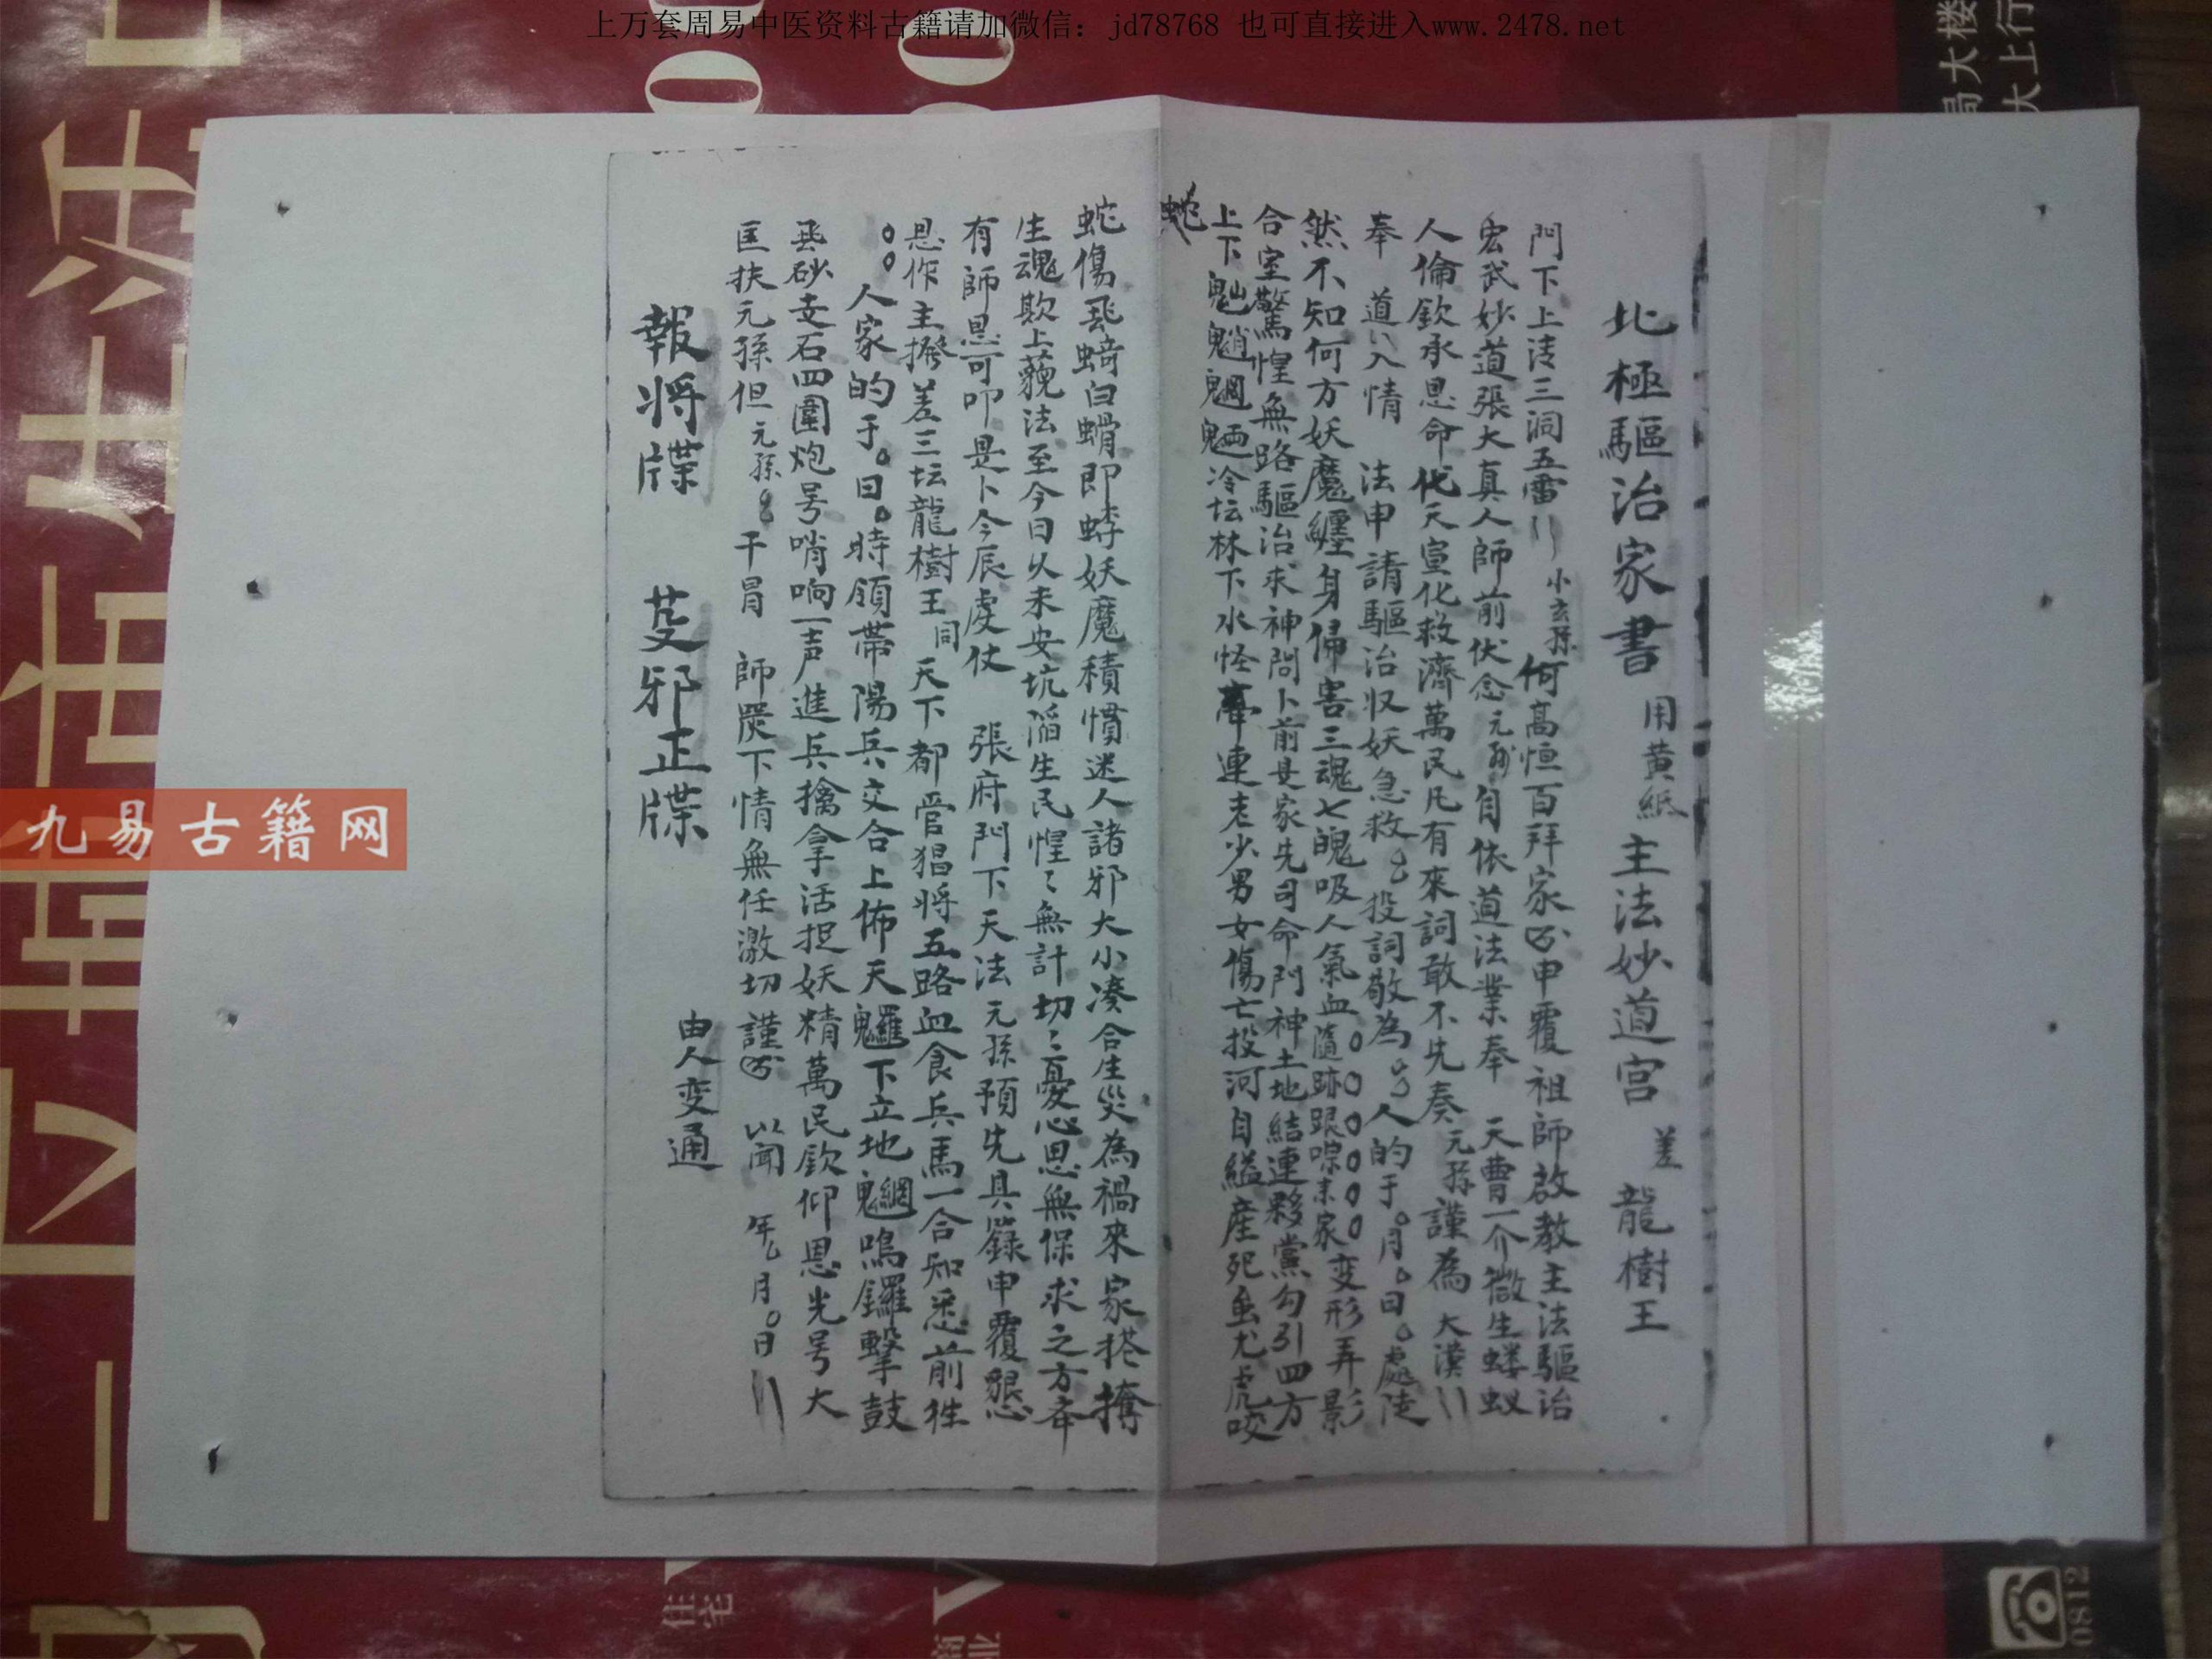 上万套周易中医资料古籍请加微信：jd78768 也可直接进入www.2478.net
北極驅治家書 用黄紙 主法妙道宫 差 龍樹王
門下上清三洞五雷 小玄孫 何高恒百拜家 申覆祖師啟教主法驅治
宏武妙道張大真人師前伏念元孫自依道法業奉 天曹一介微生蝼蚁
人倫欽承恩命代天宣化救濟萬民凡有來詞敢不先奏元孫謹為 大漠
奉 道入情 法申請驅治収妖急救 投詞敬為 人的于。月。日。處陡
然不知何方妖魔纏身俻害三魂七魄吸人氣血隨跡跟 家变形弄影
合室驚惶無路驅治求神問卜前是家先司命門神土地結連夥黨勾引四方
上下魈魍 冷坛林下水怪牽連老少男女傷亡投河自縊産死虫尤虎咬
蛇
蛇傷 白 即 妖魔積慣迷人諸邪大小凑合生災為禍來家搭
生魂欺上藐法至今日久未安坑滔生民惶〻無計切〻憂心思無保求之方幸
有師恩可叩是卜今辰虔仗 張府門下天法元孫預先具錄申覆懇
恩作主撥差三坛龍樹王同 天下都官猖将五路血食兵馬一合知悉前徃
。。人家的于。日。時領带陽兵交合上佈天 下立地 鳴鑼擊鼓
飛砂走石四圍炮号哨响一声進兵擒拿活捉妖精萬民欽仰恩光号大
匡扶元孫但元孫 干冒 師 下情無任激切謹 以聞 年 月。日
報将牒 邪正牒 由人变通
九易古籍网
局大楼
大上行
住宅
0812